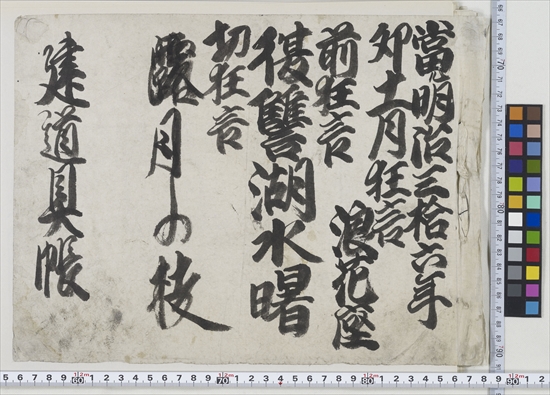 當ル明治三拾六年
卯十一月狂言
浪花座
前狂言
復讐湖水曙
切狂言
露月の枝
建道具帳